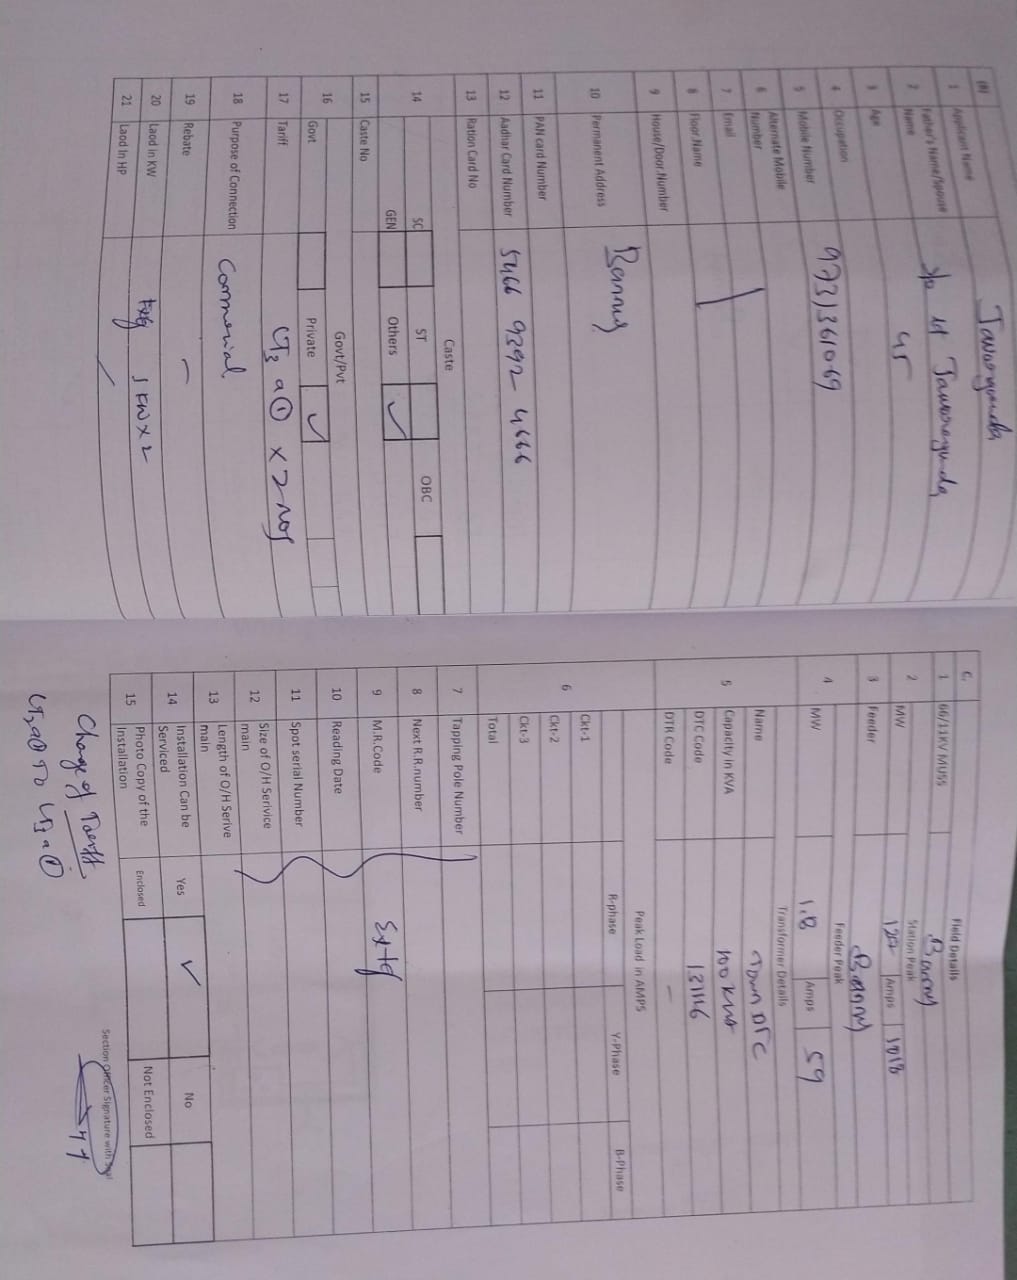 (B)
1 Applicant Name
2 Father's Name/Spouse Name
3 Age 45
4 Occupation
5 Mobile Number 9731361069
6 Alternate Mobile Number
7 Email
8 Floor Name
9 House/Door.Number
10 Permanent Address
11 PAN card Number
12 Aadhar Card Number 5466 9392 4666
13 Ration Card No
Caste
14 SC ST OBC
GEN Others ✓
15 Caste No
Govt/Pvt
16 Govt Private ✓
17 Tariff LT3 a ① x 2 Nos
18 Purpose of Connection Commercial
19 Rebate –
20 Laod in KW 1 KW x 2
21 Laod In HP
C. Field Details
1 66/11KV MUSS
Station Peak
2 MW Amps 1018
3 Feeder
Feeder Peak
4 MW 1.8 Amps 59
Transformer Details
5 Name Town DTC
Capacity in KVA 100 KVA
DTC Code
DTR Code –
Peak Load in AMPS
6 R-phase Y-Phase B-Phase
Ckt-1
Ckt-2
Ckt-3
Total
7 Tapping Pole Number
8 Next R.R.number
9 M.R.Code
10 Reading Date
11 Spot serial Number
12 Size of O/H Serivice main
13 Length of O/H Serive main
14 Installation Can be Serviced Yes ✓ No
15 Photo Copy of the Installation Enclosed Not Enclosed
Change of Tariff
Section Officer Signature with Seal